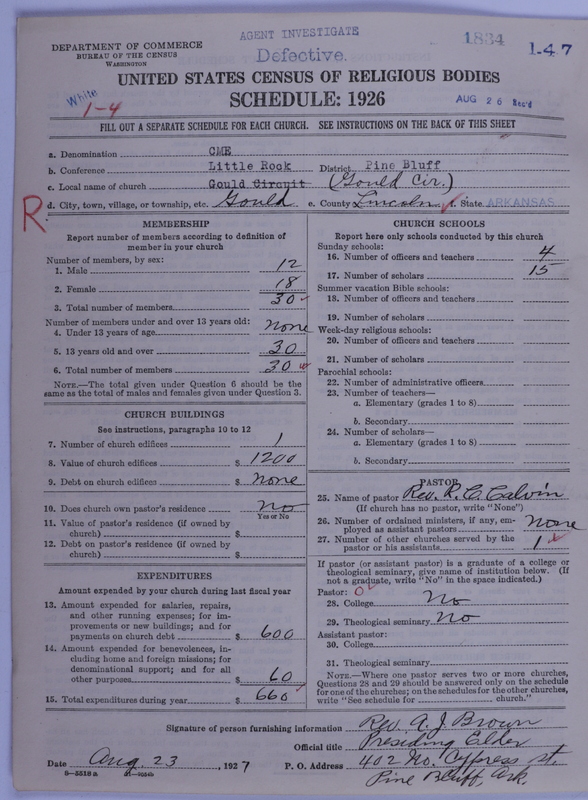 AGENT INVESTIGATE
1834
1-47
DEPARTMENT OF COMMERCE
BUREAU OF THE CENSUS
WASHINGTON
Defective.
UNITED STATES CENSUS OF RELIGIOUS BODIES
White
1-4
SCHEDULE: 1926
AUG 26 Rec'd
FILL OUT A SEPARATE SCHEDULE FOR EACH CHURCH. SEE INSTRUCTIONS ON THE BACK OF THIS SHEET
a. Denomination CME
b. Conference Little Rock District Pine Bluff
c. Local name of church Gould Circuit (Gould Cir.)
R
d. City, town, village, or township, etc. Gould e. County Lincoln f. State ARKANSAS
MEMBERSHIP
Report number of members according to definition of
member in your church
Number of members, by sex:
1. Male 12
2. Female 18
3. Total number of members 30
Number of members under and over 13 years old:
4. Under 13 years of age none
5. 13 years old and over 30
6. Total number of members 30
NOTE.—The total given under Question 6 should be the
same as the total of males and females given under Question 3.
CHURCH BUILDINGS
See instructions, paragraphs 10 to 12
7. Number of church edifices 1
8. Value of church edifices $ 1200
9. Debt on church edifices $ none
10. Does church own pastor's residence no
Yes or No
11. Value of pastor's residence (if owned by
church) $
12. Debt on pastor's residence (if owned by
church) $
EXPENDITURES
Amount expended by your church during last fiscal year
13. Amount expended for salaries, repairs,
and other running expenses; for im-
provements or new buildings; and for
payments on church debt $ 600
14. Amount expended for benevolences, in-
cluding home and foreign missions; for
denominational support; and for all
other purposes $ 60
15. Total expenditures during year $ 660
CHURCH SCHOOLS
Report here only schools conducted by this church
Sunday schools:
16. Number of officers and teachers 4
17. Number of scholars 15
Summer vacation Bible schools:
18. Number of officers and teachers
19. Number of scholars
Week-day religious schools:
20. Number of officers and teachers
21. Number of scholars
Parochial schools:
22. Number of administrative officers
23. Number of teachers—
a. Elementary (grades 1 to 8)
b. Secondary
24. Number of scholars—
a. Elementary (grades 1 to 8)
b. Secondary
PASTOR
25. Name of pastor Rev. R. C. Calvin
(If church has no pastor, write "None")
26. Number of ordained ministers, if any, em-
ployed as assistant pastors none
27. Number of other churches served by the
pastor or his assistants 1
If pastor (or assistant pastor) is a graduate of a college or
theological seminary, give name of institution below. (If
not a graduate, write "No" in the space indicated.)
Pastor: 0
28. College No
29. Theological seminary No
Assistant pastor:
30. College
31. Theological seminary
NOTE.—Where one pastor serves two or more churches,
Questions 28 and 29 should be answered only on the schedule
for one of the churches; on the schedules for the other churches,
write "See schedule for church."
Signature of person furnishing information Rev. A. J. Brown
Official title Presiding Elder
Date Aug. 23, 1927 P. O. Address 402 No. Cypress st.
8—5518 a
Pine Bluff, Ark.